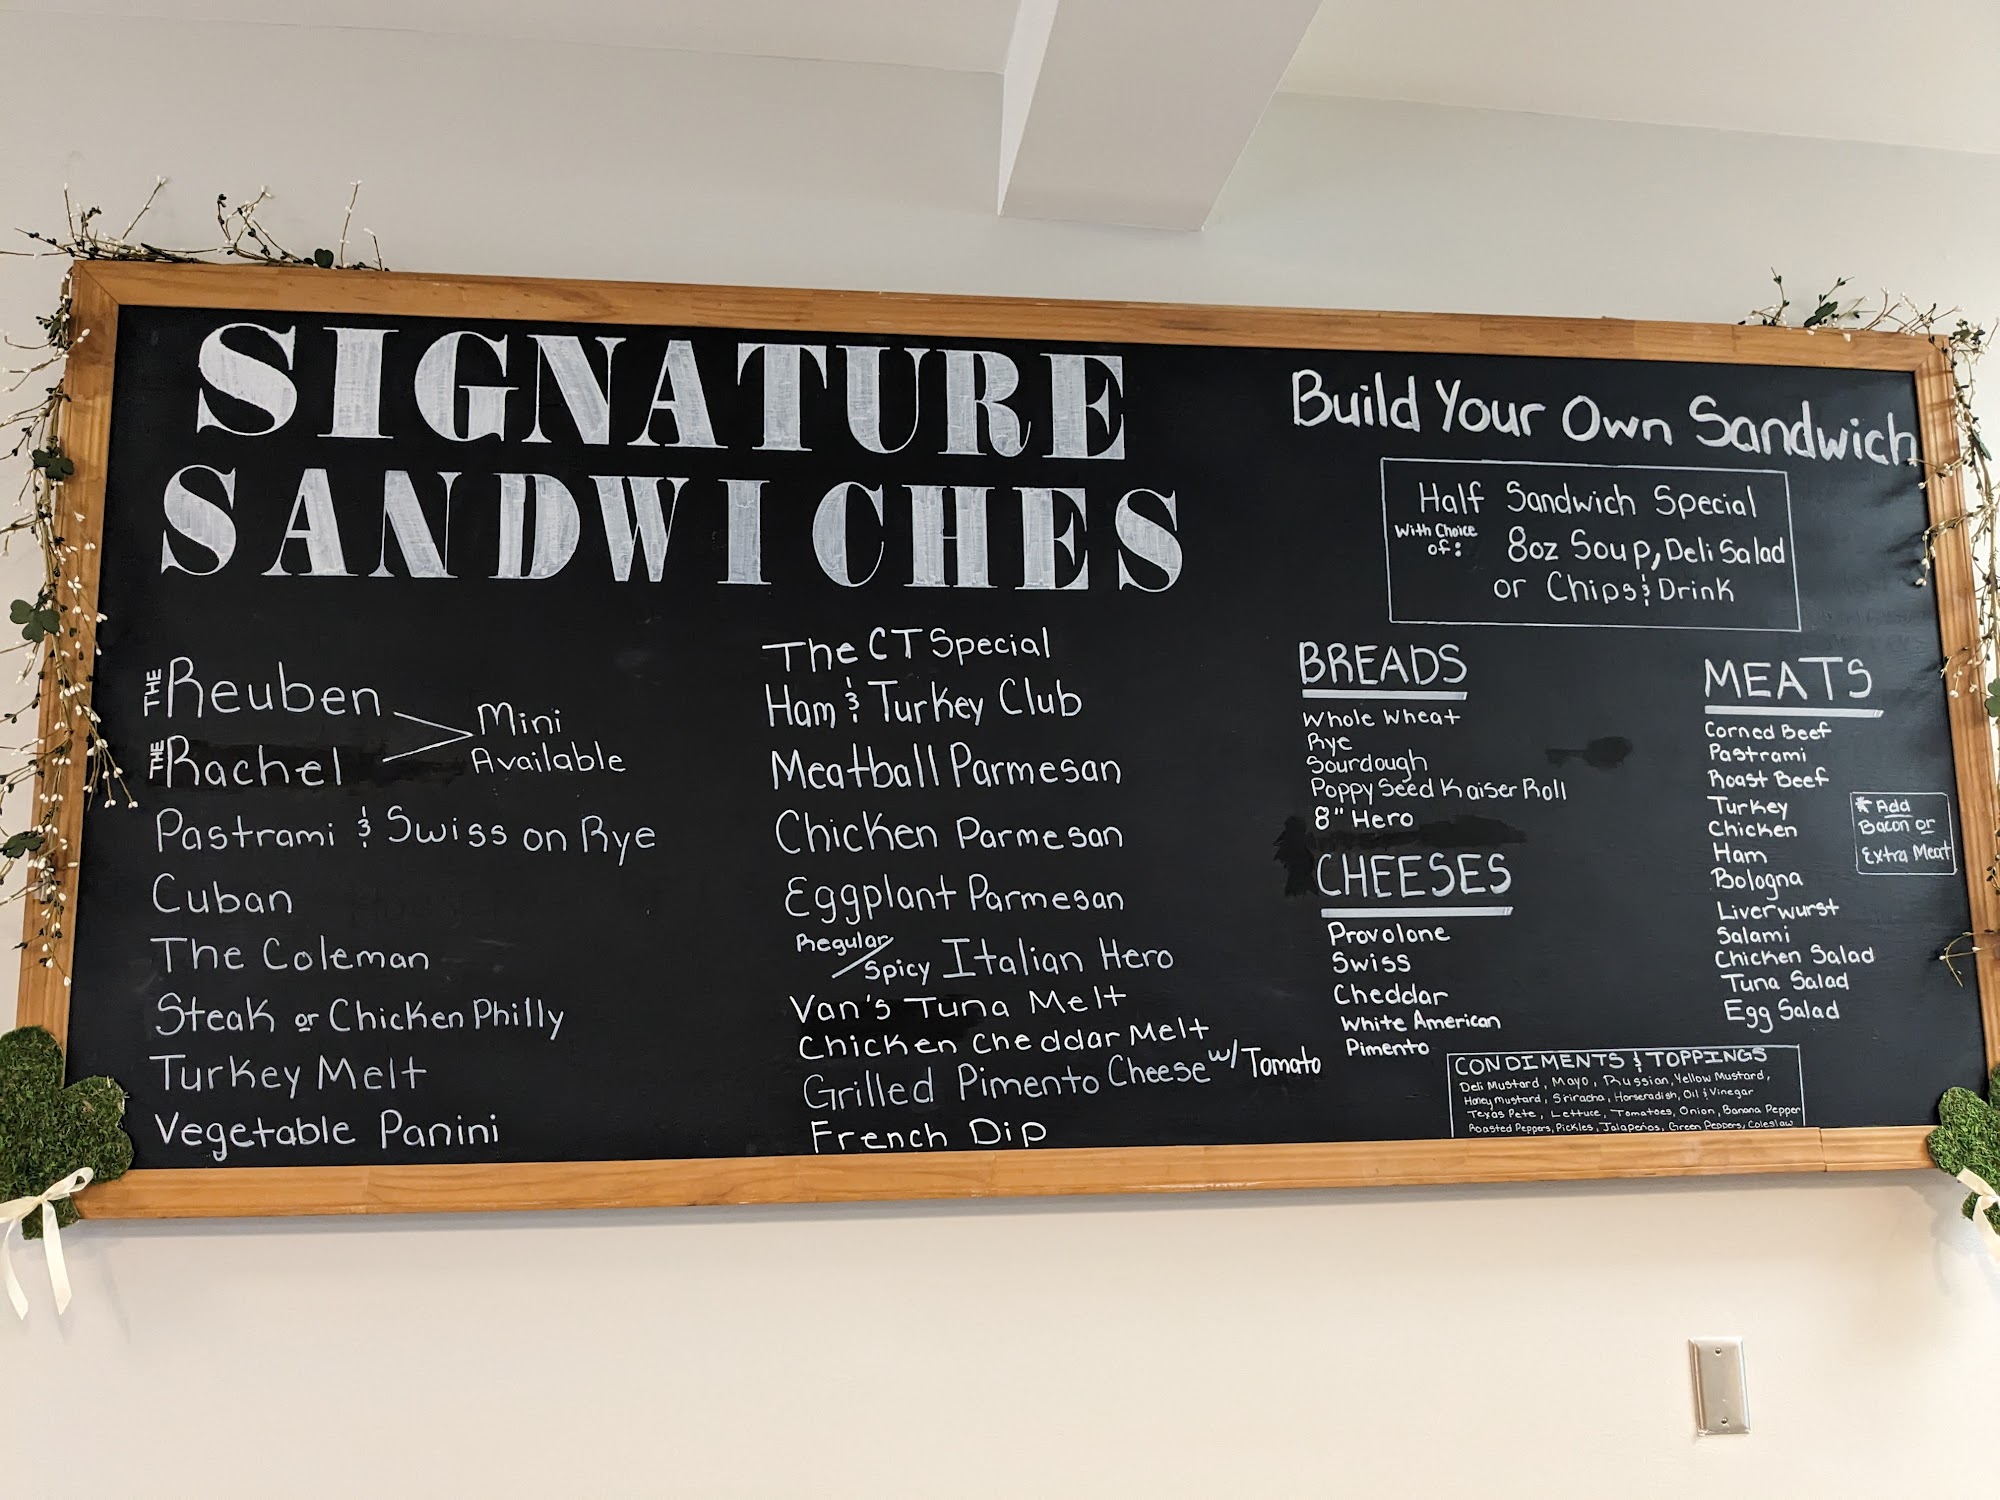 SIGNATURE
SANDWICHES
THE Reuben
THE Rachel
Mini
Available
Pastrami & Swiss on Rye
Cuban
The Coleman
Steak or Chicken Philly
Turkey Melt
Vegetable Panini
The CT Special
Ham & Turkey Club
Meatball Parmesan
Chicken Parmesan
Eggplant Parmesan
Regular/Spicy Italian Hero
Van's Tuna Melt
Chicken Cheddar Melt
Grilled Pimento Cheese w/ Tomato
French Dip
Build Your Own Sandwich
Half Sandwich Special
With Choice of: 8oz Soup, Deli Salad
or Chips & Drink
BREADS
Whole Wheat
Rye
Sourdough
Poppy Seed Kaiser Roll
8" Hero
CHEESES
Provolone
Swiss
Cheddar
White American
Pimento
MEATS
Corned Beef
Pastrami
Roast Beef
Turkey
Chicken
Ham
Bologna
Liverwurst
Salami
Chicken Salad
Tuna Salad
Egg Salad
* Add
Bacon or
Extra Meat
CONDIMENTS & TOPPINGS
Deli Mustard, Mayo, Russian, Yellow Mustard,
Honey mustard, Sriracha, Horseradish, Oil & Vinegar
Texas Pete, Lettuce, Tomatoes, Onion, Banana Pepper
Roasted Peppers, Pickles, Jalapeños, Green Peppers, Coleslaw